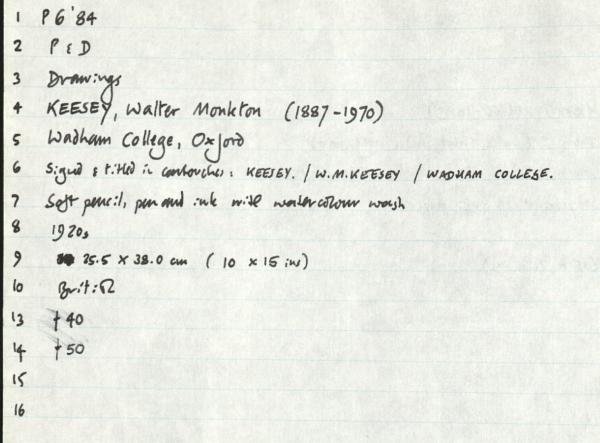 1 P6'84
2 P & D
3 Drawings
4 KEESEY, Walter Monkton (1887-1970)
5 Wadham College, Oxford
6 Signed & titled in cartouches: KEESEY. / W.M.KEESEY / WADHAM COLLEGE.
7 Soft pencil, pen and ink with watercolour wash
8 1920s
9 25.5 x 38.0 cm (10 x 15 in)
10 Brit:Ω
13 † 40
14 † 50
15
16